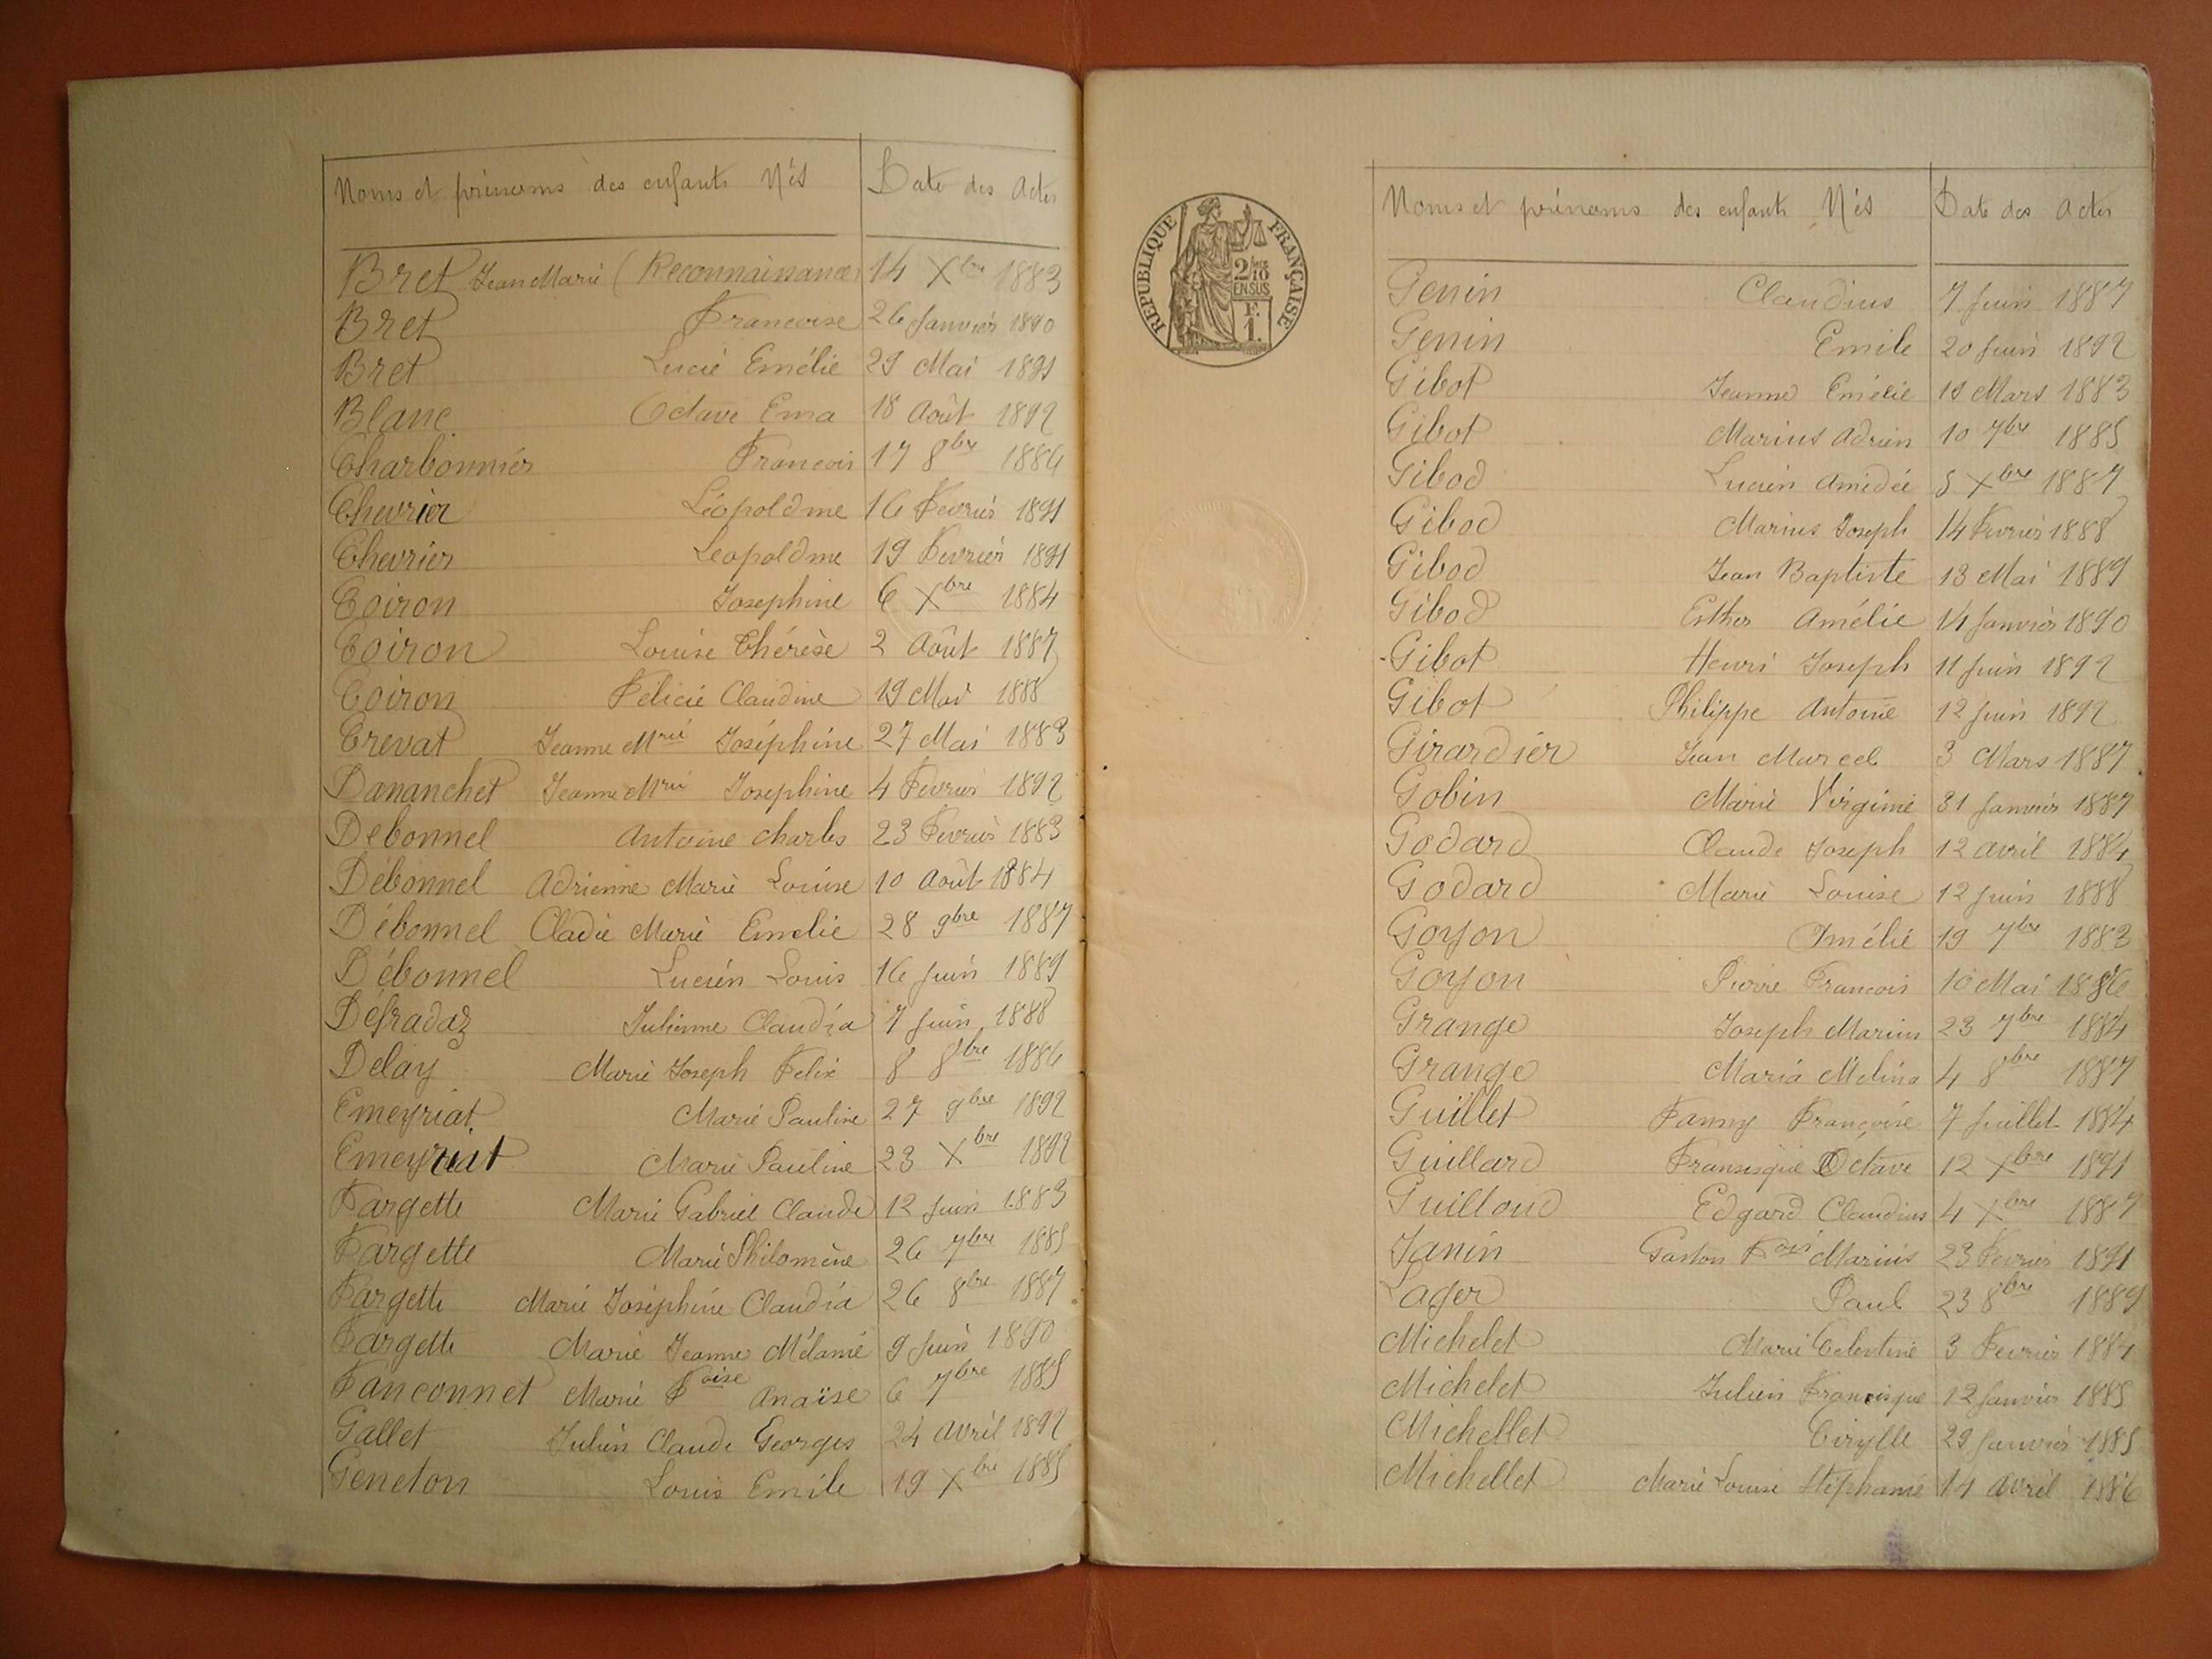 Noms et prénoms des enfants Nés Date des Actes
Bret Jean Marie (Reconnaissance) 14 Xbre 1883
Bret Francoise 26 Janvier 1890
Bret Lucie Emélie 29 Mai 1891
Blanc Octave Ema 18 Août 1892
Charbonnier Francois 17 8bre 1886
Chevrier Léopoldine 16 Fevrier 1891
Chevrier Leopoldine 19 Fevrier 1891
Coiron Josephine 6 Xbre 1884
Coiron Louise Thérèse 2 Août 1887
Coiron Felicie Claudine 19 Mai 1888
Crevat Jeanne Mrie Joséphine 27 Mai 1883
Dananchet Jeanne Mrie Josephine 4 Fevrier 1892
Debonnel Antoine Charles 23 Fevrier 1883
Débonnel Adrienne Marie Louise 10 Août 1884
Débonnel Cladie Marie Emelie 28 9bre 1887
Débonnel Lucien Louis 16 Juin 1889
Défradaz Julienne Claudia 7 Juin 1888
Delay Marie Joseph Felix 8 8bre 1886
Emeyriat Marie Pauline 27 9bre 1892
Emeyriat Marie Pauline 23 Xbre 1892
Fargette Marie Gabriel Claude 12 Juin 1883
Fargette Marie Philomène 26 7bre 1885
Fargette Marie Joséphine Claudia 26 8bre 1887
Fargette Marie Jeanne Mélanie 9 Juin 1890
Fanconnet Marie Foise Anaïse 6 7bre 1885
Gallet Julien Claude Georges 24 Avril 1892
Geneton Louis Emile 19 Xbre 1885
REPUBLIQUE FRANÇAISE
2/10
EN SUS
F.
1.
Noms et prénoms des enfants Nés Date des Actes
Genin Claudius 7 Juin 1887
Genin Emile 20 Juin 1892
Gibot Jeanne Emélie Mars 1883
Gibot Marius Adrien 10 7bre 1885
Gibod Lucien Amédée 5 Xbre 1887
Gibod Marius Joseph 14 Fevrier 1888
Gibod Jean Baptiste 13 Mai 1889
Gibod Esther Amélie 14 Janvier 1890
Gibot Henri Joseph 11 Juin 1892
Gibot Philippe Antoine 12 Juin 1892
Girardier Jean Marcel 3 Mars 1887
Gobin Marie Virginie 31 Janvier 1887
Godard Claude Joseph 12 Avril 1884
Godard Marie Louise 12 Juin 1888
Goyon Amélie 19 7bre 1883
Goyon Pierre Francois 10 Mai 1886
Grange Joseph Marius 23 7bre 1884
Grange Maria Mélina 4 8bre 1887
Guillet Fanny Françoise 7 Juillet 1884
Guillard Fransisque Octave 12 Xbre 1891
Guilloud Edgard Claudius 4 Xbre 1887
Janin Gaston Fois Marius 23 Fevrier 1891
Lager Paul 23 8bre 1889
Michelet Marie Celestine 3 Fevrier 1884
Michelet Julien Francisque 12 Janvier 1885
Michellet Cirylle 29 Janvier 1885
Michellet Marie Louise Stéphanie 14 Avril 1886